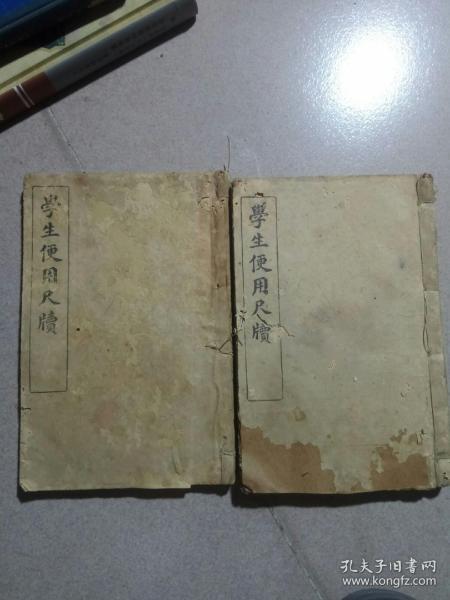 學生便用尺牘
學生便用尺牘
孔夫子旧书网
www.kongfz.com